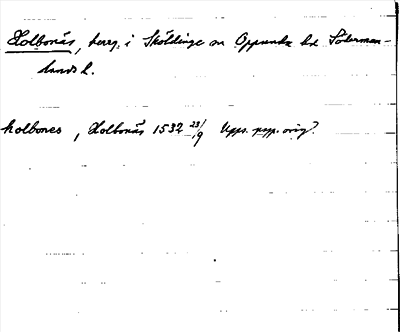 Holbonäs, herrg. i Sköldinge sn Oppunda hd Söderman-
lands l.
holbones, Holbonäs 1532 23/9 Upps. pap. orig?